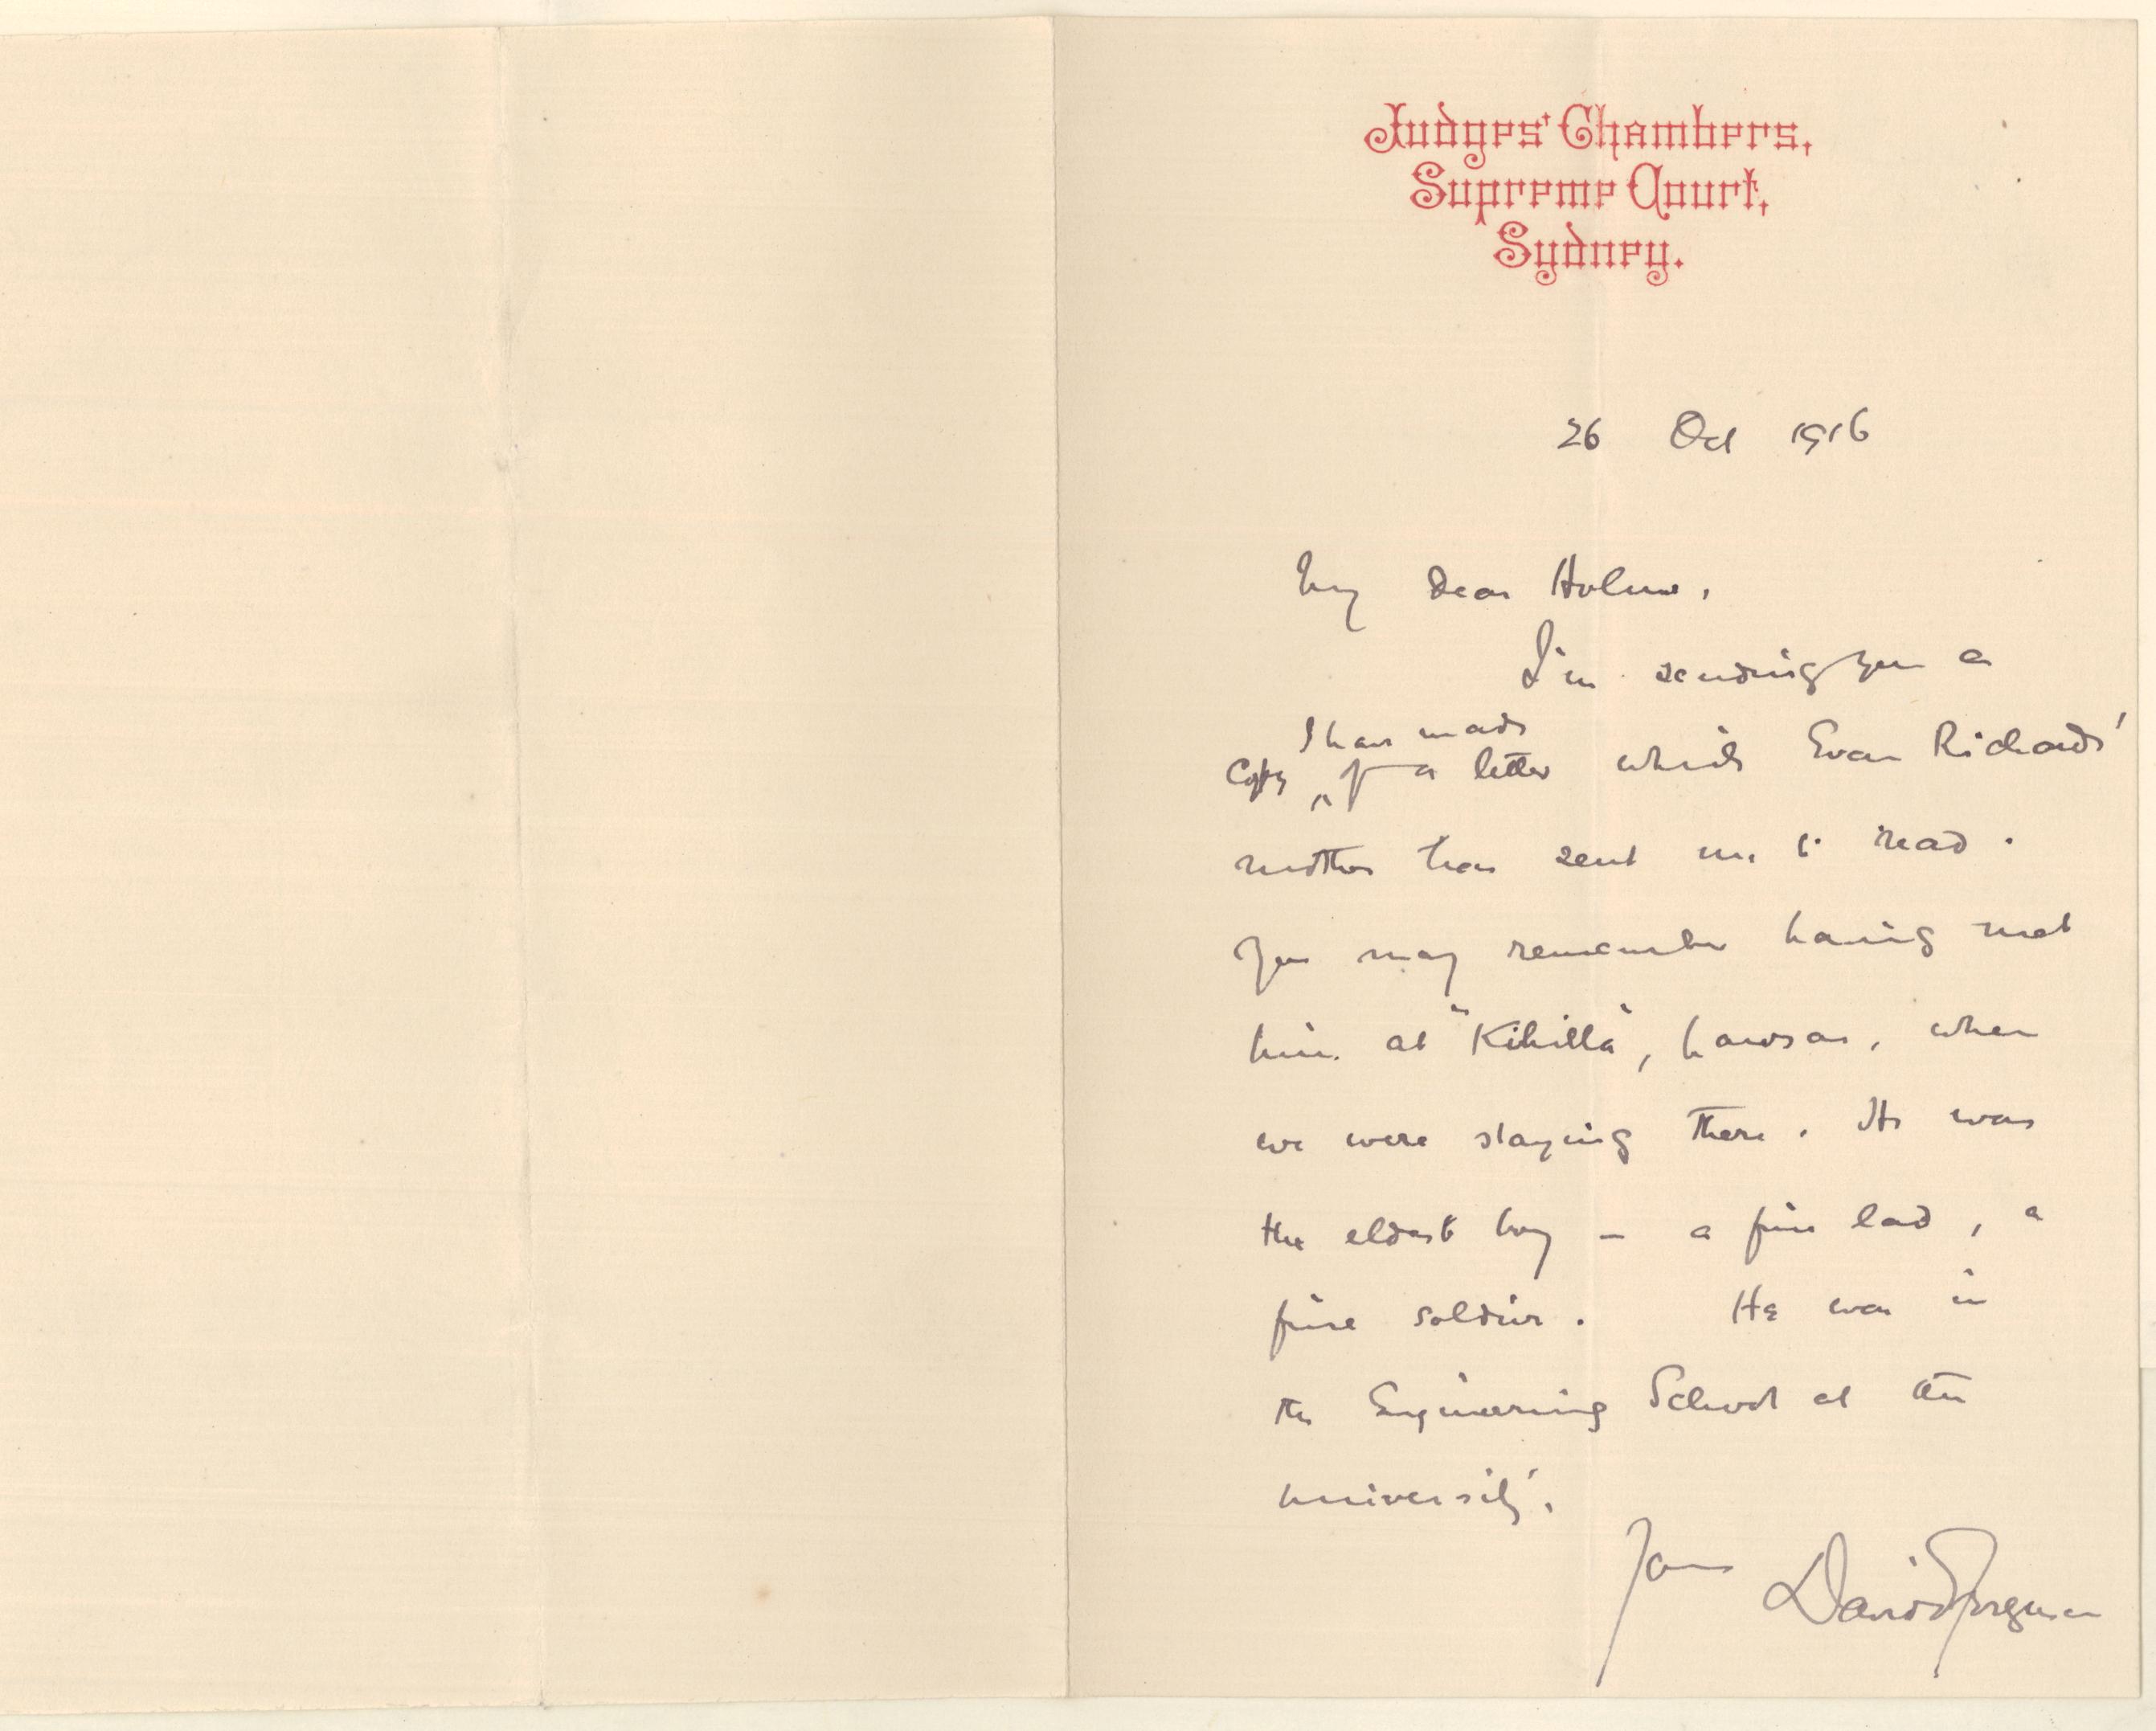 Judges' Chambers,
Supreme Court,
Sydney.
26 Oct 1916
My dear Holme,
I'm sending you a
I have made
copy ^ of a letter which Evan Richards'
mother has sent me to read.
You may remember having met
him at "Kihilla", Lawson, when
we were staying there. He was
the eldest boy – a fine lad, a
fine soldier. He was in
the Engineering School at the
University.
Yours David Ferguson